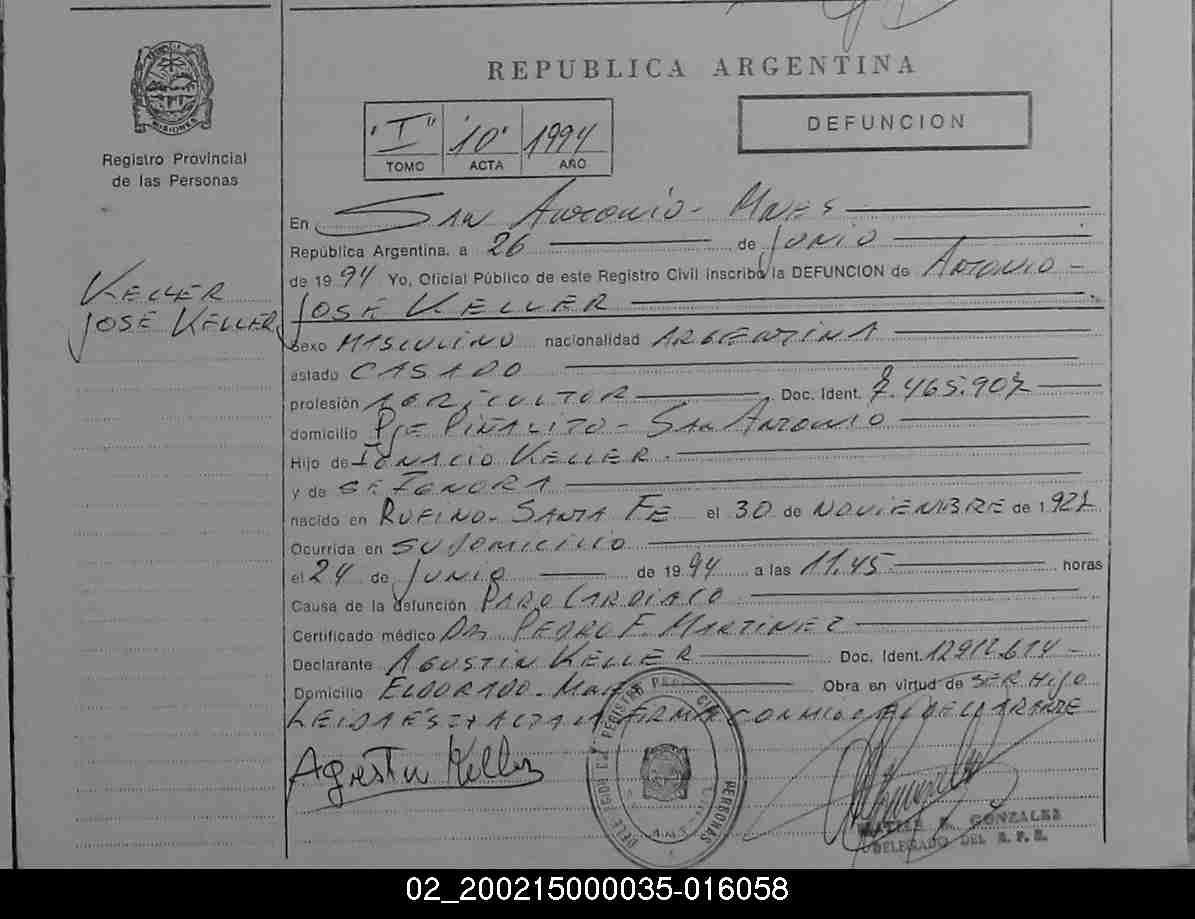 REPUBLICA ARGENTINA
MISIONES
Registro Provincial
de las Personas
"I" "10" 1994
TOMO ACTA AÑO
DEFUNCION
En SAN ANTONIO - MNES
República Argentina, a 26 de JUNIO
de 1994 Yo, Oficial Público de este Registro Civil inscribo la DEFUNCION de ANTONIO -
KELLER
JOSÉ KELLER
JOSÉ KELLER
Sexo MASCULINO nacionalidad ARGENTINA
estado CASADO
profesión AGRICULTOR Doc. Ident. 7.465.907
domicilio Pje PIÑALITO - SAN ANTONIO
Hijo de IGNACIO KELLER.
y de SE IGNORA
nacido en RUFINO - SANTA FE el 30 de NOVIEMBRE de 1927
Ocurrida en SU DOMICILIO
el 24 de JUNIO de 1994 a las 11.45 horas
Causa de la defunción PARO CARDIACO
Certificado médico DR. PEDRO F. MARTINEZ
Declarante AGUSTIN KELLER Doc. Ident. 12.917.614 -
Domicilio ELDORADO - Obra en virtud de SER HIJO
LEIDA ESTA ACTA LA FIRMA CONMIGO EL DECLARANTE
Agustin Keller
PERSONAS
GONZALEZ
DELEGADO DEL R. P. R.
02_200215000035-016058